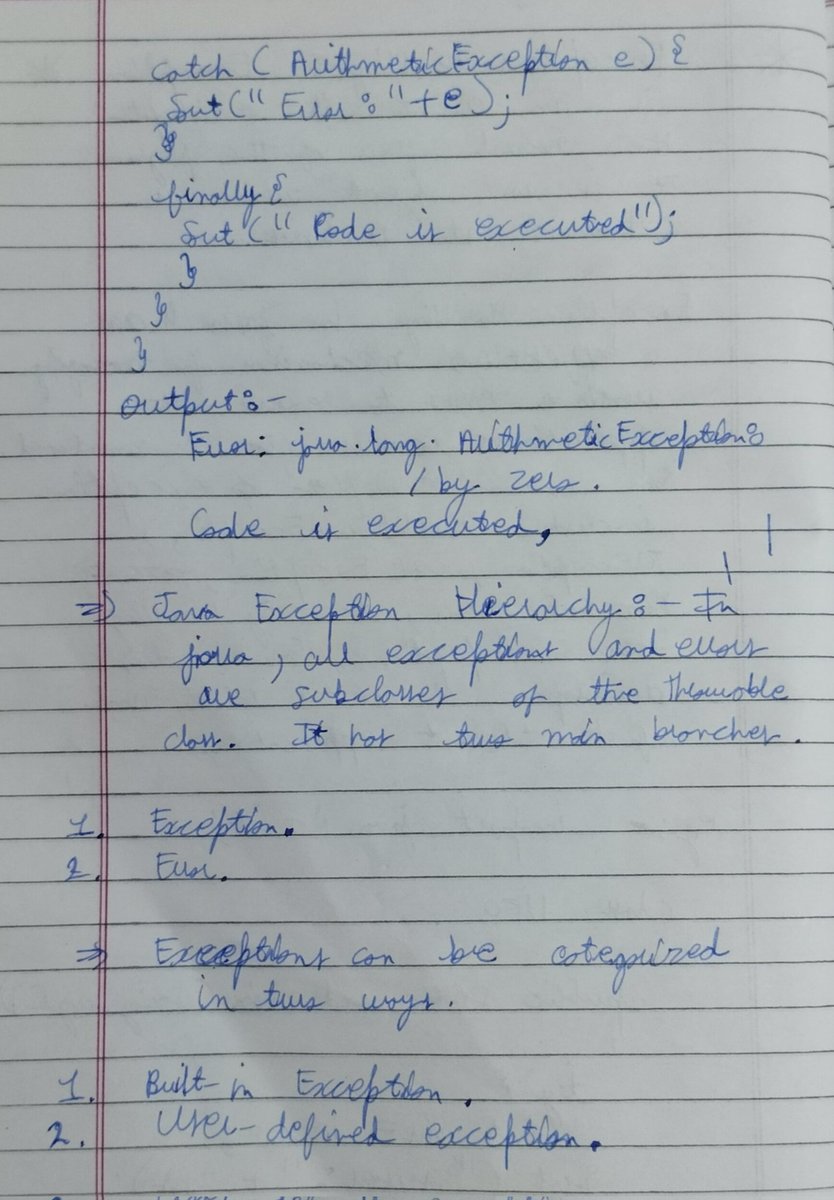 catch ( ArithmeticException e) {
Sout (" Error : " + e );
}
finally {
Sout (" Code is executed");
}
}
}
Output :-
Error: java.lang. ArithmeticException:
/ by zero.
Code is executed,
=> Java Exception Hierarchy :- In
java, all exceptions and errors
are subclasses of the Throwable
class. It has two main branches.
1. Exception.
2. Error.
=> Exceptions can be categorized
in two ways.
1. Built-in Exception.
2. User-defined exception.